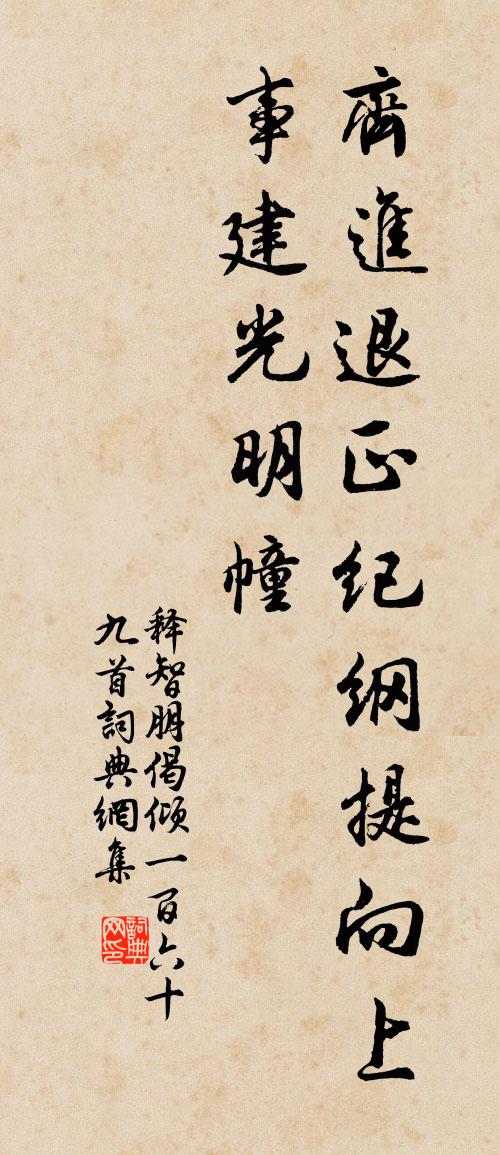 齊進退正纪綱提向上
事建光明幢
释智朋偈倾一百六十
九首詞典網集
詞典网印